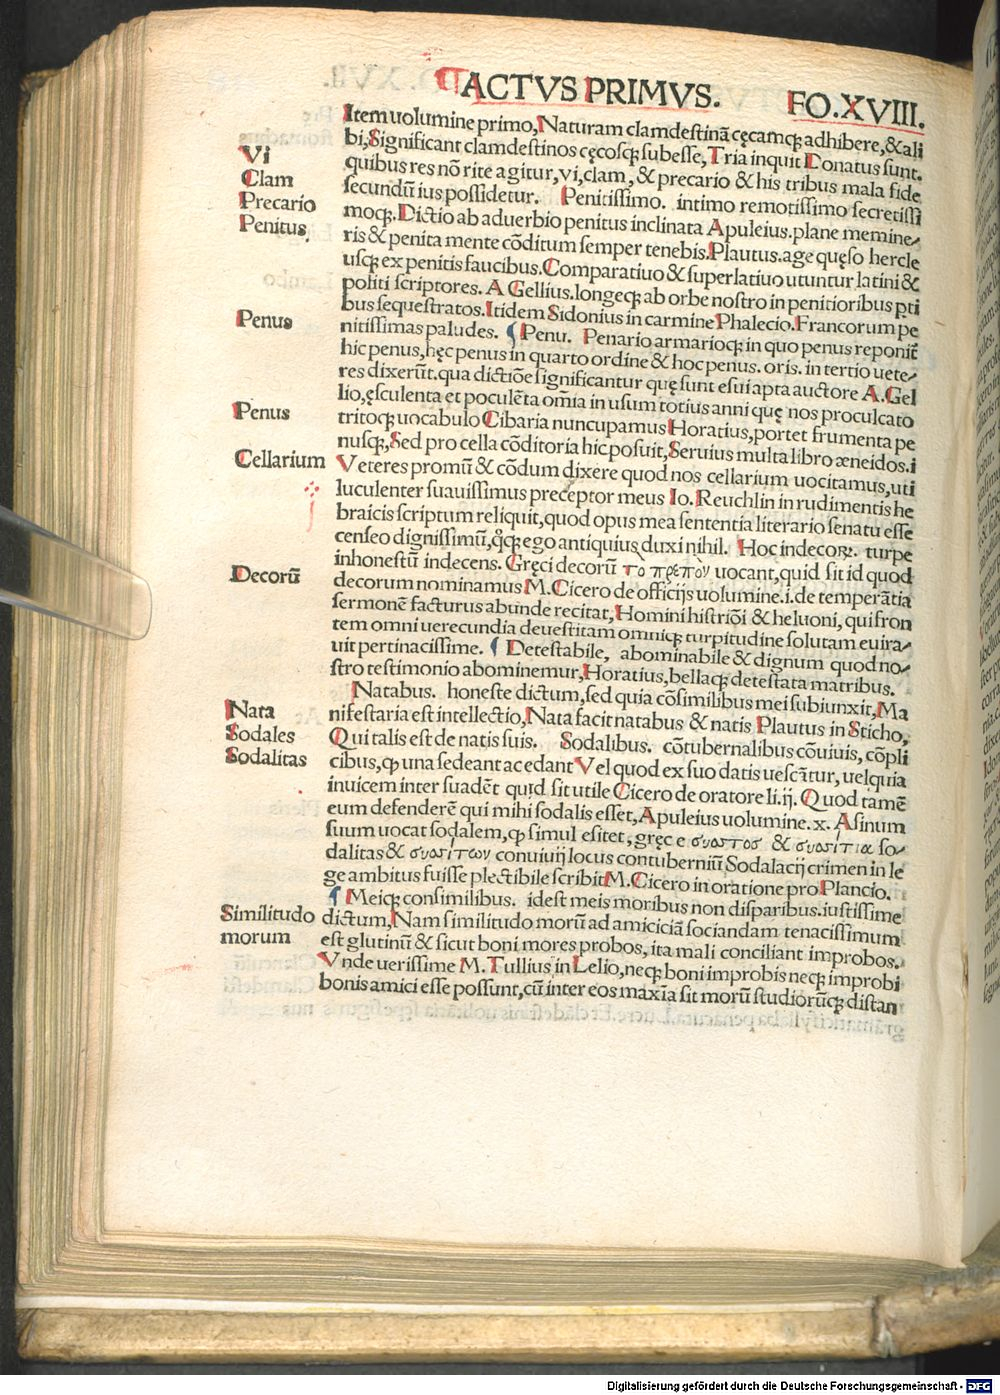 ACTVS PRIMVS. FO.XVIII.
Item uolumine primo, Naturam clamdestinã cęcamq; adhibere, & ali
bi, Significant clamdestinos cęcosq; subesse, Tria inquit Donatus sunt.
Vi
quibus res nõ rite agitur, vi, clam, & precario & his tribus mala fide
Clam
secundũ ius possidetur. Penitissimo. intimo remotissimo secretissi
Precario
moq;. Dictio ab aduerbio penitus inclinata Apuleius. plane memine-
Penitus.
ris & penita mente cõditum semper tenebis. Plautus. age quęso hercle
usq; ex penitis faucibus. Comparatiuo & superlatiuo utuntur latini &
politi scriptores. A Gellius. longeq; ab orbe nostro in penitioribus pti
bus sequestratos. Itidem Sidonius in carmine Phalecio. Francorum pe
Penus
nitissimas paludes. ¶ Penu. Penario armarioq; in quo penus reponit̃
hic penus, hęc penus in quarto ordine & hoc penus. oris. in tertio uete-
res dixerũt. qua dictiõe significantur quę sunt esui apta auctore A. Gel
lio, ęsculenta et poculẽta omĩa in usum totius anni quę nos proculcato
Penus
tritoq; uocabulo Cibaria nuncupamus Horatius, portet frumenta pe
nusq;, Sed pro cella cõditoria hic posuit, Seruius multa libro æneidos. i
Cellarium
Veteres promũ & cõdum dixere quod nos cellarium uocitamus, uti
luculenter suauissimus preceptor meus Io. Reuchlin in rudimentis he
braicis scriptum reliquit, quod opus mea sententia literario senatu esse
censeo dignissimũ, q̃q; ego antiquius duxi nihil. Hoc indecorꝝ. turpe
inhonestũ indecens. Gręci decorũ το πρεπον uocant, quid sit id quod
Decorũ
decorum nominamus M. Cicero de officijs uolumine. i. de temperãtia
sermonẽ facturus abunde recitat, Homini histriõi & heluoni, qui fron
tem omni uerecundia deuestitam omniq; turpitudine solutam euira-
uit pertinacissime. ¶ Detestabile, abominabile & dignum quod no-
stro testimonio abominemur, Horatius, bellaq; detestata matribus.
Natabus. honeste dictum, sed quia cõsimilibus mei subiunxit, Ma
Nata
nifestaria est intellectio, Nata facit natabus & natis Plautus in Sticho,
Sodales
Qui talis est de natis suis. Sodalibus. cõtubernalibus cõuiuis, cõpli
Sodalitas
cibus, qp una sedeant ac edant Vel quod ex suo datis uescãtur, uel quia
inuicem inter suadẽt quid sit utile Cicero de oratore li. ij. Quod tamẽ
eum defenderẽ qui mihi sodalis esset, Apuleius uolumine. x. Asinum
suum uocat sodalem, qp simul esitet, gręc e συσιτος & συσιτια so-
dalitas & συσιτων conuiuij locus contuberniũ Sodalacij crimen in le
ge ambitus fuisse plectibile scribit M. Cicero in oratione pro Plancio.
¶ Meiq; consimilibus. idest meis moribus non disparibus. iustissime
Similitudo
dictum, Nam similitudo morũ ad amiciciã sociandam tenacissimum
morum
est glutinũ & sicut boni mores probos, ita mali conciliant improbos.
Vnde uerissime M. Tullius in Lelio, neq; boni improbis neq; improbi
bonis amici esse possunt, cũ inter eos maxĩa sit morũ studiorũq; distan
Digitalisierung gefördert durch die Deutsche Forschungsgemeinschaft - DFG